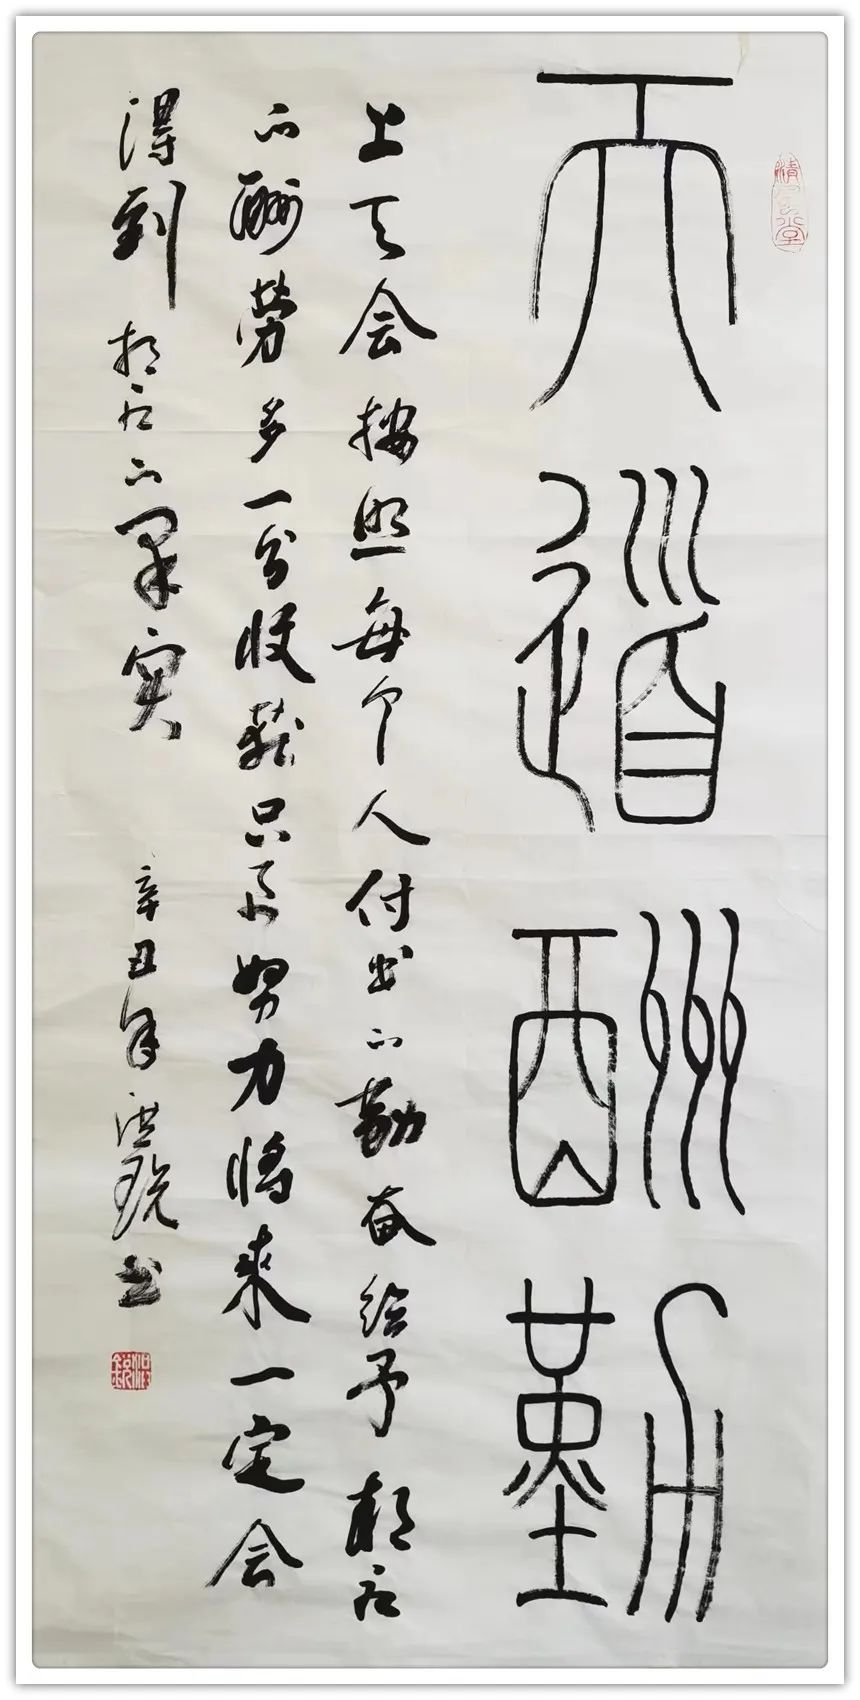 天道酬勤
上天会按照每个人付出的勤奋给予相应
的酬劳多一分收获只要努力将来一定会
得到相应的果实 辛丑年洪锐书